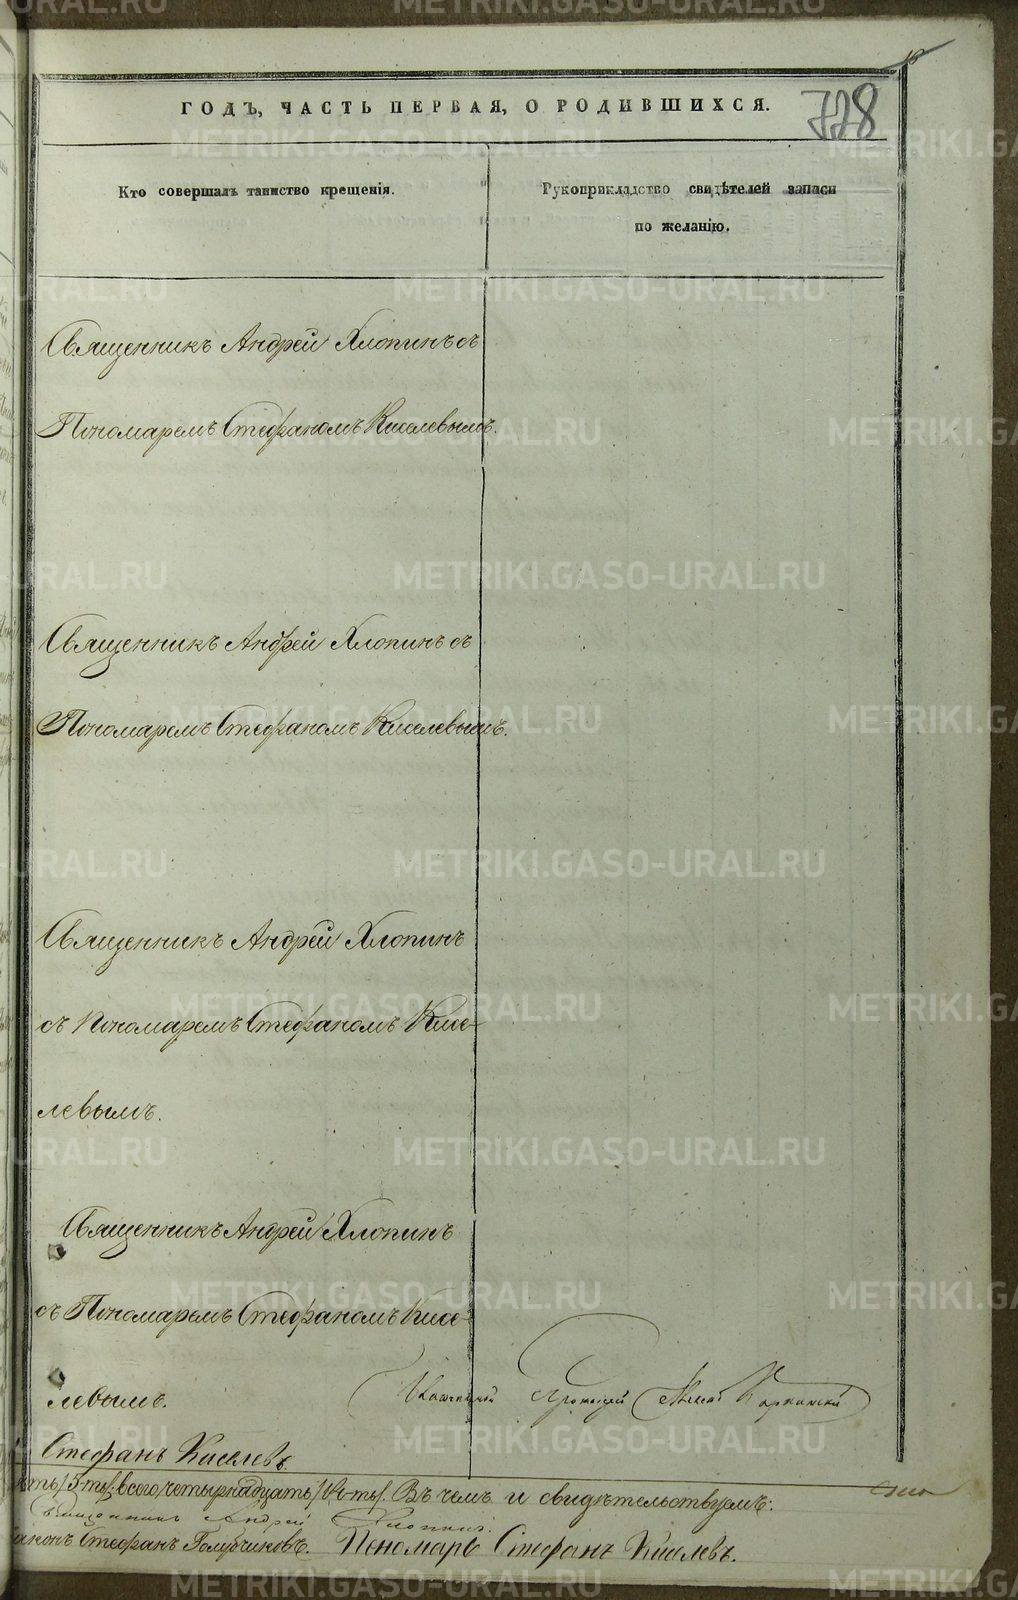 ГОДЪ, ЧАСТЬ ПЕРВАЯ, О РОДИВШИХСЯ.
728
Кто совершалъ таинство крещенія.
Рукоприкладство свидѣтелей записи
по желанію.
Священникъ Андрей Хлопинъ съ
Пономаремъ Стефаномъ Киселевымъ.
Священникъ Андрей Хлопинъ съ
Пономаремъ Стефаномъ Киселевымъ.
Священникъ Андрей Хлопинъ
съ Пономаремъ Стефаномъ Кисе-
левымъ.
Священникъ Андрей Хлопинъ
съ Пономаремъ Стефаномъ Кисе-
левымъ.
Протоіерей
Стефанъ Киселевъ.
всего четырнадцать /14-ть/. Въ чемъ и свидѣтельствуемъ:
Священникъ Андрей Хлопинъ.
Стефанъ Голубчиковъ. Пономарь Стефанъ Киселевъ.
METRIKI.GASO-URAL.RU